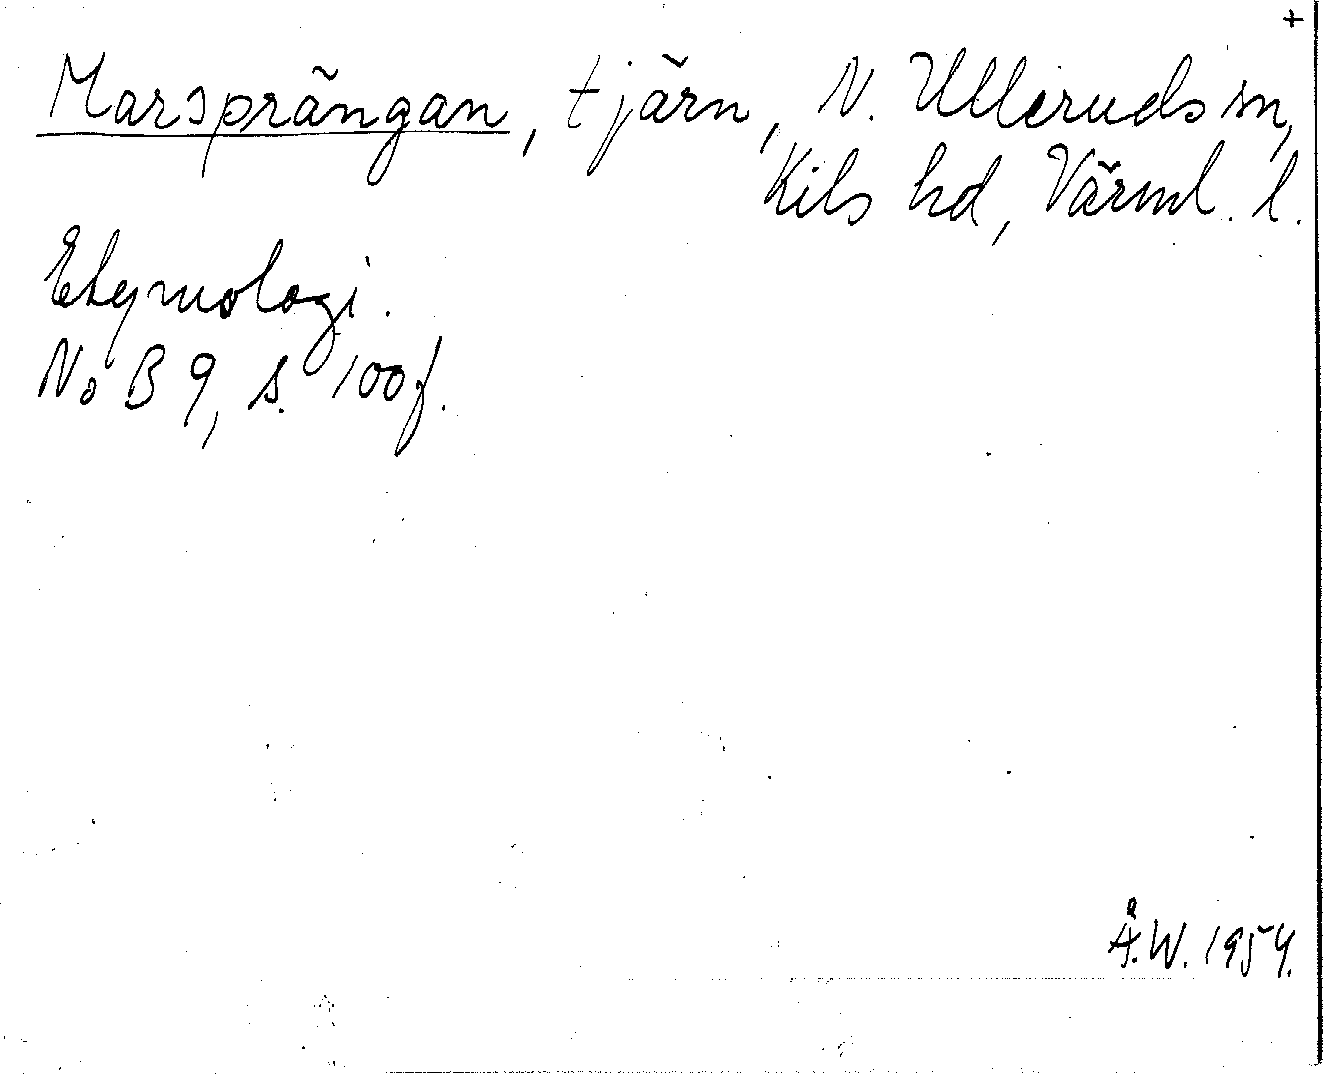 +
Marsprängan, tjärn, N. Ulleruds sn,
Kils hd, Värml. l.
Etymologi.
NoB 9, s. 100f.
Å.W. 1954.